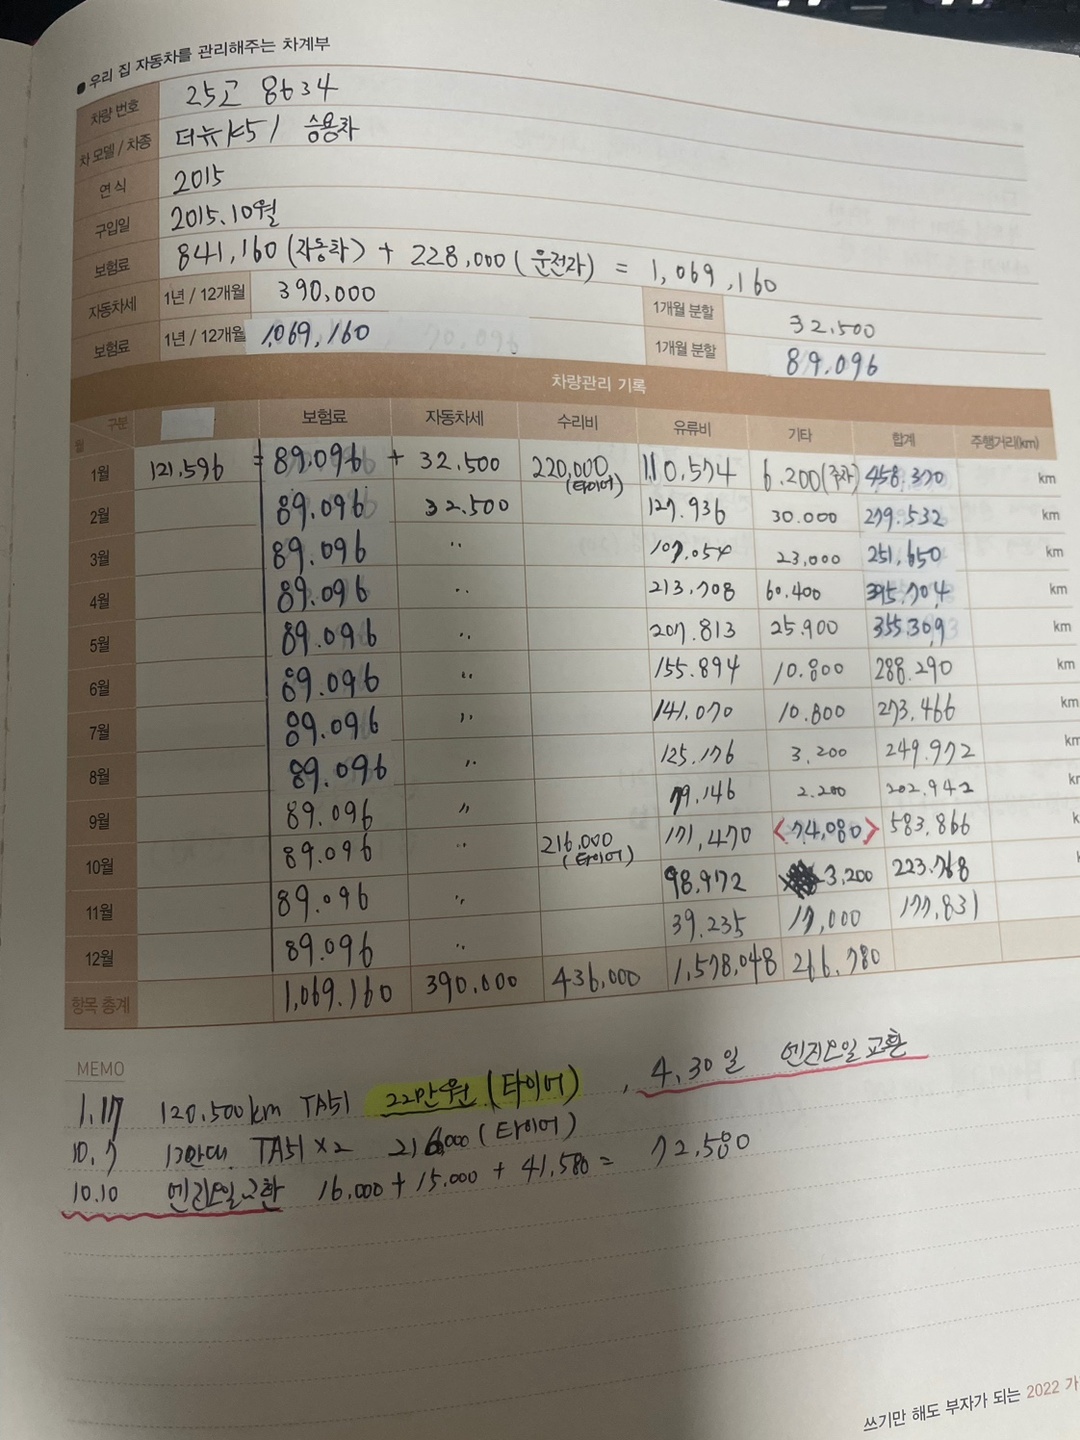 ● 우리 집 자동차를 관리해주는 차계부
차량 번호 25고 8634
차 모델 / 차종 더뉴K5 / 승용차
연 식 2015
구입일 2015.10월
보험료 841,160 (자동차) + 228,000 (운전자) = 1,069,160
자동차세 1년 / 12개월 390,000 1개월 분할 32.500
보험료 1년 / 12개월 1,069,160 1개월 분할 89.096
차량관리 기록
월 구분 보험료 자동차세 수리비 유류비 기타 합계 주행거리(km)
1월 121,596 = 89.096 + 32.500 220,000 (타이어) 110.574 6.200(주차) 458,370 km
2월 89.096 32.500 127.936 30.000 279.532 km
3월 89.096 〃 107.054 23,000 251,650 km
4월 89.096 〃 213.708 60.400 395.704 km
5월 89.096 〃 207.813 25.900 355.309 km
6월 89.096 〃 155.894 10.800 288.290 km
7월 89.096 〃 141.070 10.800 273.466 km
8월 89.096 〃 125.176 3,200 249.972 km
9월 89.096 〃 79.146 2.200 202.942
10월 89.096 〃 216.000 (타이어) 171,470 <74,080> 583,866
11월 89.096 〃 98.972 3,200 223.768
12월 89.096 〃 39.235 17,000 177,831
항목 총계 1,069.160 390.000 436,000 1,578,048 266.780
MEMO
1.17 120.500km TA51 22만원 (타이어) , 4.30일 엔진오일 교환
10.7 12만대. TA51 × 2 216000 (타이어)
10.10 엔진오일교환 16.000 + 15.000 + 41.580 = 72,580
쓰기만 해도 부자가 되는 2022 가